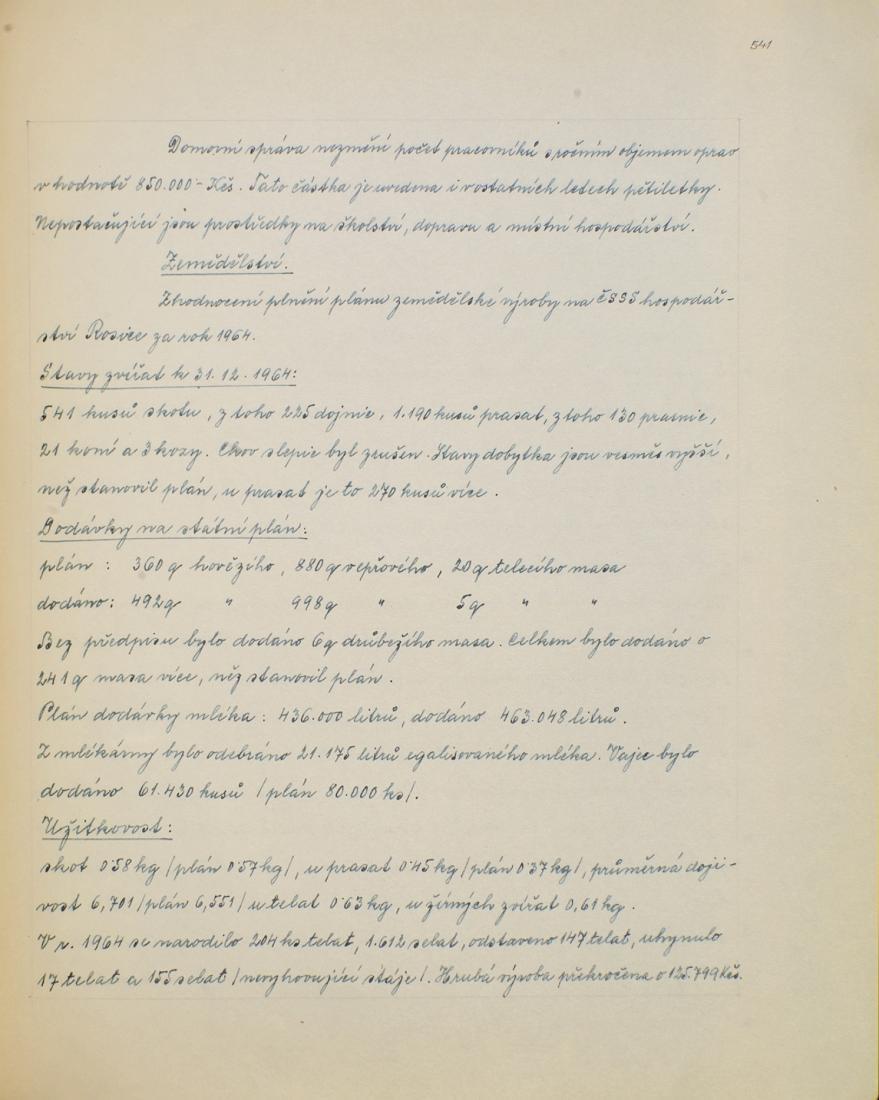 541
Domovní správa nezmění počet pracovníků s ročním objemem oprav
v hodnotě 850.000 - Kčs. Tato částka je uvedena i v ostatních letech pětiletky.
Nepostačující jsou prostředky na školství, dopravu a místní hospodářství.
Zemědělství.
Zhodnocení plnění plánu zemědělské výroby na ČSSS hospodář-
ství Rosice za rok 1964.
Stavy zvířat k 31. 12. 1964:
541 kusů skotu, z toho 225 dojnic, 1.190 kusů prasat, z toho 130 prasnic,
21 koní a 3 kozy. Chov slepic byl zrušen. Stavy dobytka jsou vesměs vyšší,
než stanovil plán, u prasat je to 270 kusů více.
Dodávky na státní plán:
plán : 360 q hovězího, 880 q vepřového, 20 q telecího masa
dodáno: 492 q " 998 q " 5 q " "
Bez předpisu bylo dodáno 6 q drůbežího masa. Celkem bylo dodáno o
241 q masa více, něž stanovil plán.
Plán dodávky mléka : 436.000 litrů, dodáno 463.048 litrů.
Z mlékárny bylo odebráno 21.175 litrů egalisovaného mléka. Vajec bylo
dodáno 61.430 kusů /plán 80.000 ks/.
Užitkovost:
skot 0'58 kg /plán 0'57 kg/, u prasat 0'45 kg /plán 0'37 kg/, průměrná doji-
vost 6,70 l /plán 6,55 l/ u telat 0'63 kg, u žírných zvířat 0,61 kg.
V r. 1964 se narodilo 204 ks telat, 1.612 selat, odstaveno 147 telat, uhynulo
17 telat a 155 selat /nevyhovující stáje/. Hrubá výroba překročena o 125.799 Kčs.